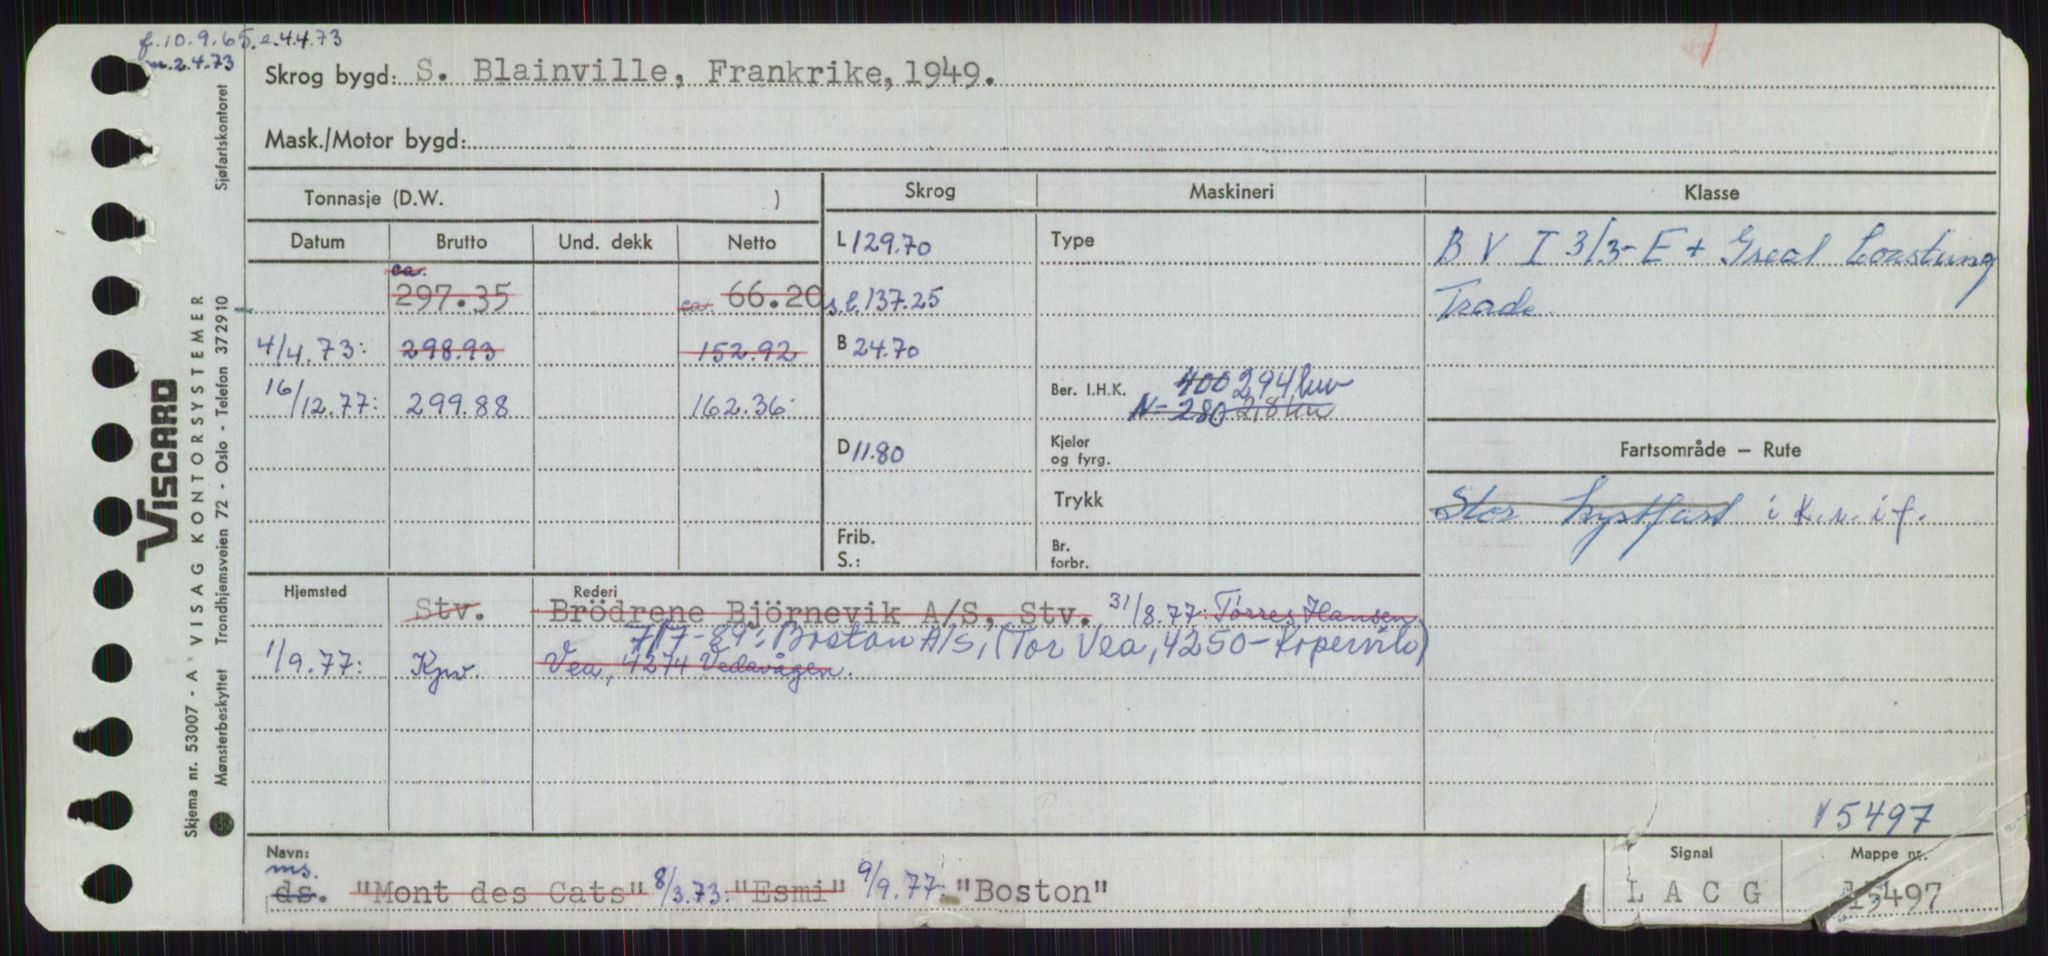 f. 10.9.65. e. 4.4.73
m. 2.4.73
Skrog bygd: S. Blainville, Frankrike, 1949.
Mask./Motor bygd:
Tonnasje (D.W. )
Datum Brutto Und. dekk Netto
ca. 297.35 ca. 66.20
4/4.73: 298.93 152.92
16/12.77: 299.88 162.36
Skrog
L 129.70
s.l. 137.25
B 24.70
D 11.80
Frib.
S.:
Maskineri
Type
Ber. I.H.K. 400 294 kw
N= 280
Kjeler
og fyrg.
Trykk
Br.
forbr.
Klasse
B V I 3/3 - E + Great Coasting
Trade
Fartsområde – Rute
Stor kystfart i k.v. i f.
Hjemsted Rederi
Stv. Brödrene Björnevik A/S, Stv. 31/8.77: Torres Hansen
7/7-89: Boston A/S, (Tor Vea, 4250-Kopervik)
1/9.77: Kpv. Vea, 4274 Vedavågen.
15497
Navn:
ms.
ds. "Mont des Cats" 8/3.73: "Esmi" 9/9.77: "Boston"
Signal
L A C G
Mappe nr.
15497
VISCARD
Skjema nr. 53007 - A VISAG KONTORSYSTEMER
Mønsterbeskyttet Trondhjemsveien 72 - Oslo - Telefon 372910 Sjøfartskontoret